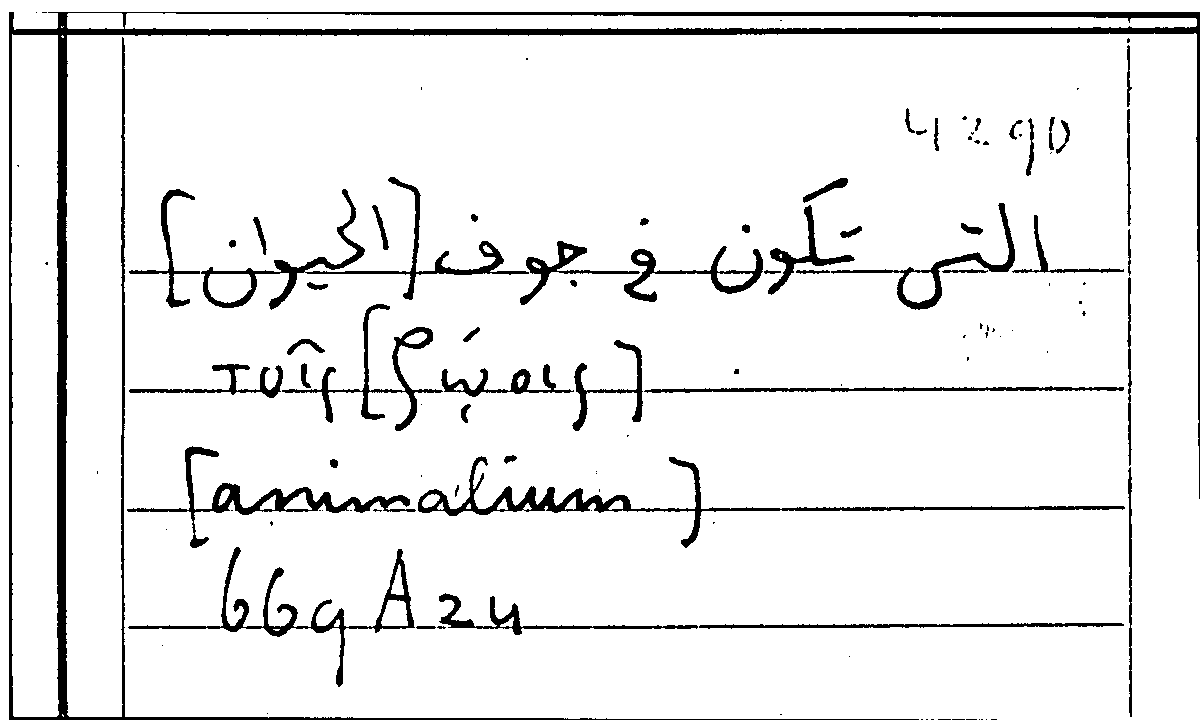 4290
التى تكون فى جوف [الحيوان]
τοῖς [ζῴοις]
[animalium]
669 A 24